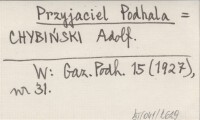 Przyjaciel Podhala =
CHYBIŃSKI Adolf.
W: Gaz. Podh. 15 (1927),
nr 31.